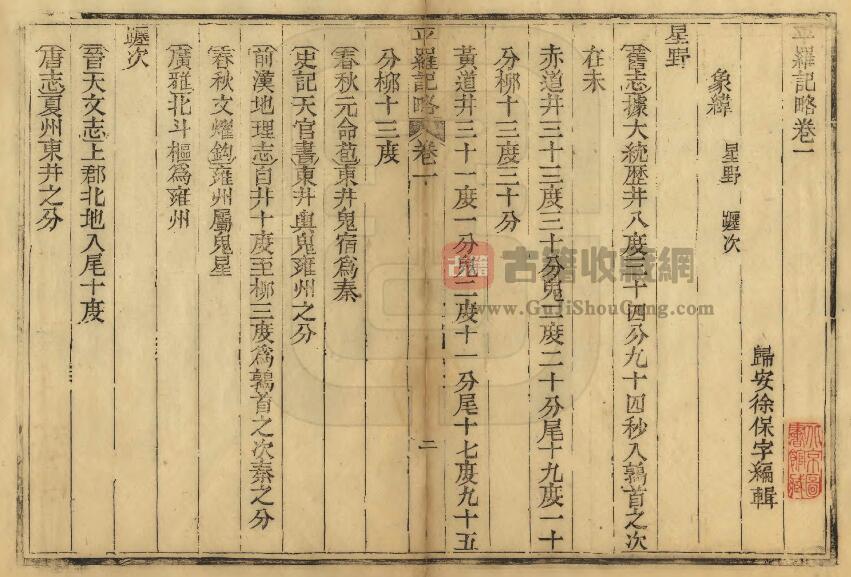 平羅記略卷一
歸安徐保字編輯
象緯 星野 躔次
星野
舊志據大統歷井八度三十四分九十四秒入鶉首之次
在未
赤道井三十三度三十分鬼二度二十分尾十九度一十
分柳十三度三十分
黃道井三十一度一分鬼二度十一分尾十七度九十五
平羅記略 卷一 二
分柳十三度
春秋元命苞東井鬼宿爲秦
史記天官書東井輿鬼雍州之分
前漢地理志自井十度至柳三度爲鶉首之次秦之分
春秋文燿鈎雍州屬鬼星
廣雅北斗樞爲雍州
躔次
晉天文志上郡北地入尾十度
唐志夏州東井之分
古籍 古籍收藏網
www.GuJiShouCang.com